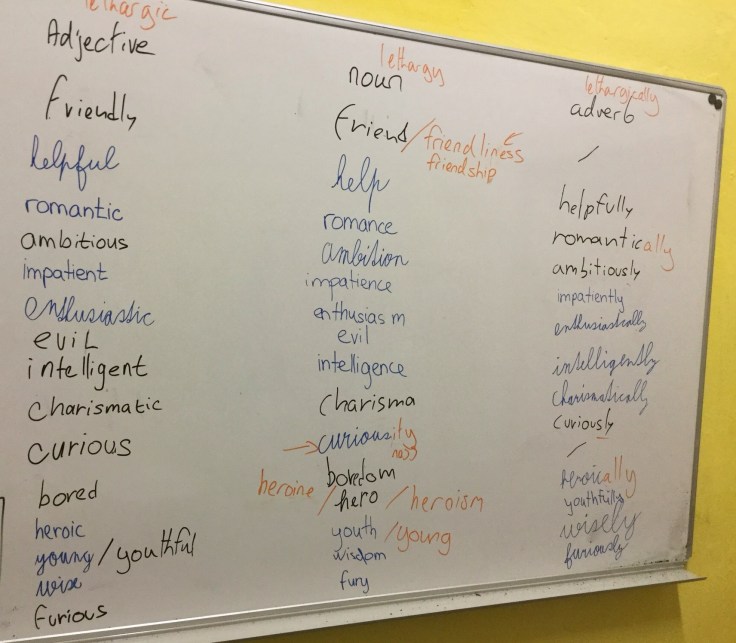 lethargic
Adjective
Friendly
helpful
romantic
ambitious
impatient
enthusiastic
evil
intelligent
charismatic
curious
bored
heroic
young / youthful
wise
Furious
lethargy
noun
Friend / friendliness
friendship
help
romance
ambition
impatience
enthusiasm
evil
intelligence
charisma
curiousity
ness
boredom
heroine / hero / heroism
youth / young
wisdom
fury
lethargically
adverb
/
helpfully
romantically
ambitiously
impatiently
enthusiastically
intelligently
charismatically
curiously
/
heroically
youthfully
wisely
furiously